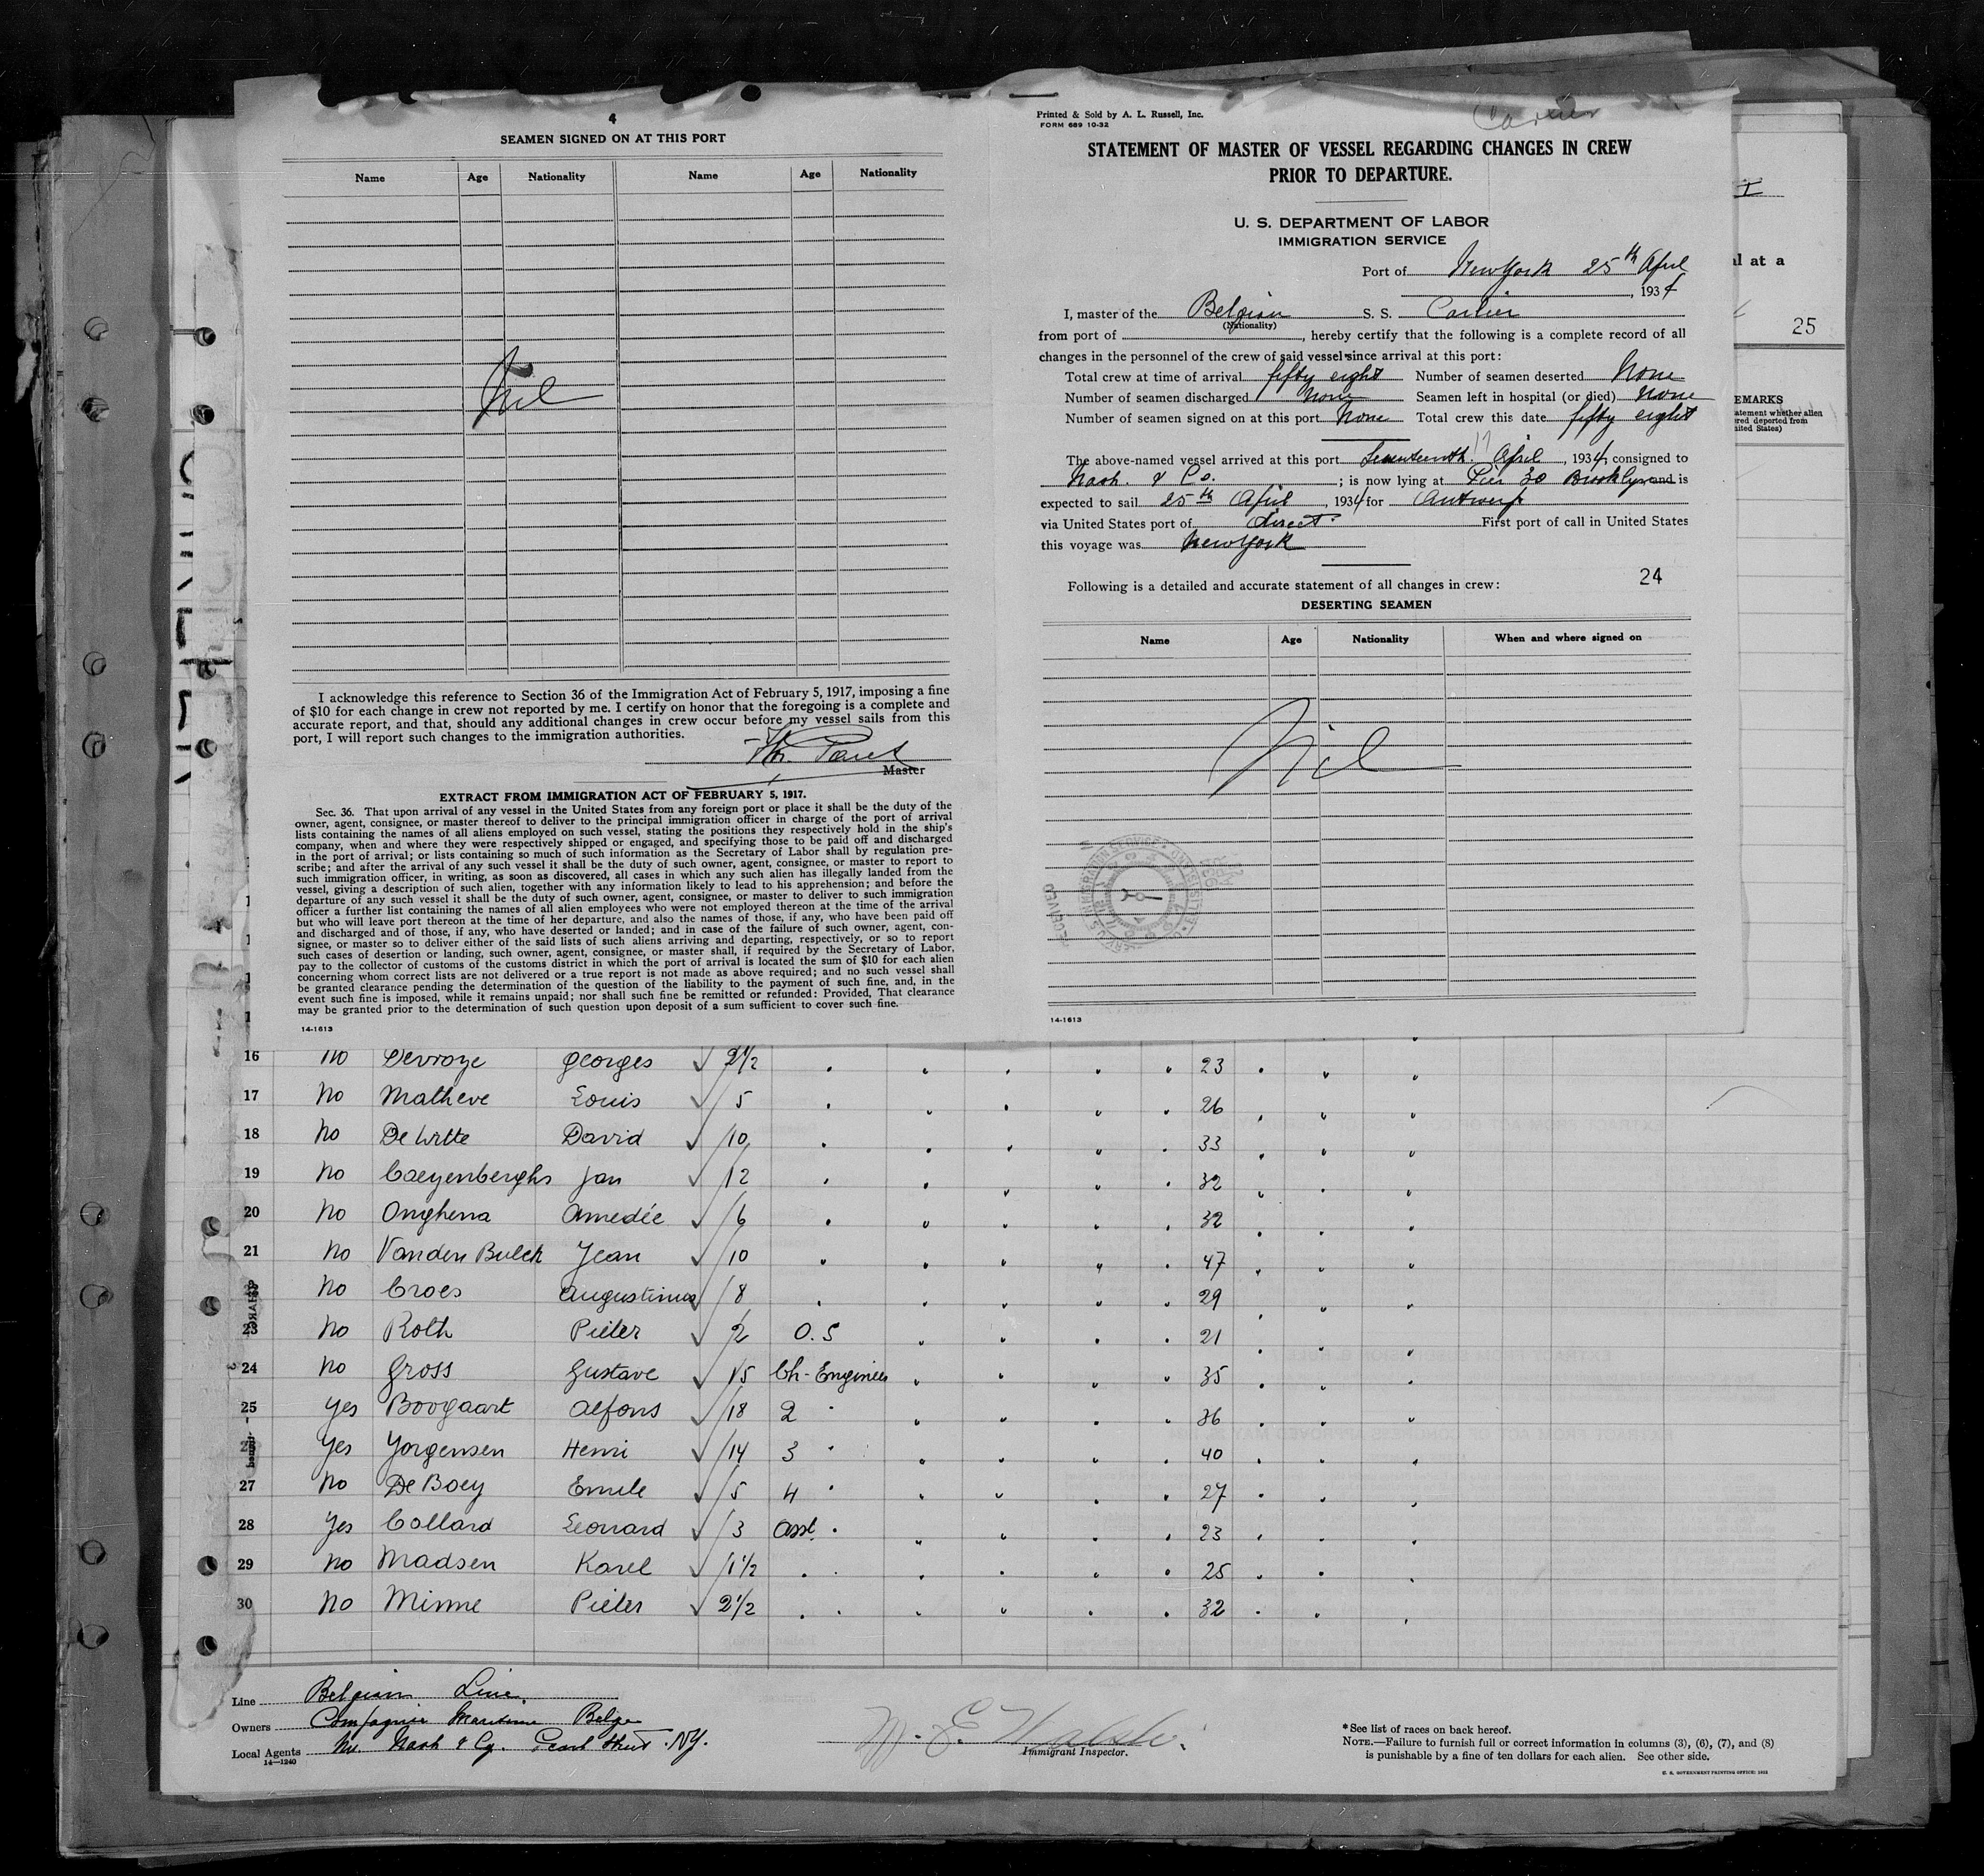 4
SEAMEN SIGNED ON AT THIS PORT
Name Age Nationality Name Age Nationality
Nil
I acknowledge this reference to Section 36 of the Immigration Act of February 5, 1917, imposing a fine
of $10 for each change in crew not reported by me. I certify on honor that the foregoing is a complete and
accurate report, and that, should any additional changes in crew occur before my vessel sails from this
port, I will report such changes to the immigration authorities.
Master
EXTRACT FROM IMMIGRATION ACT OF FEBRUARY 5, 1917.
Sec. 36. That upon arrival of any vessel in the United States from any foreign port or place it shall be the duty of the
owner, agent, consignee, or master thereof to deliver to the principal immigration officer in charge of the port of arrival
lists containing the names of all aliens employed on such vessel, stating the positions they respectively hold in the ship's
company, when and where they were respectively shipped or engaged, and specifying those to be paid off and discharged
in the port of arrival; or lists containing so much of such information as the Secretary of Labor shall by regulation pre-
scribe; and after the arrival of any such vessel it shall be the duty of such owner, agent, consignee, or master to report to
such immigration officer, in writing, as soon as discovered, all cases in which any such alien has illegally landed from the
vessel, giving a description of such alien, together with any information likely to lead to his apprehension; and before the
departure of any such vessel it shall be the duty of such owner, agent, consignee, or master to deliver to such immigration
officer a further list containing the names of all alien employees who were not employed thereon at the time of the arrival
but who will leave port thereon at the time of her departure, and also the names of those, if any, who have been paid off
and discharged and of those, if any, who have deserted or landed; and in case of the failure of such owner, agent, con-
signee, or master so to deliver either of the said lists of such aliens arriving and departing, respectively, or so to report
such cases of desertion or landing, such owner, agent, consignee, or master shall, if required by the Secretary of Labor,
pay to the collector of customs of the customs district in which the port of arrival is located the sum of $10 for each alien
concerning whom correct lists are not delivered or a true report is not made as above required; and no such vessel shall
be granted clearance pending the determination of the question of the liability to the payment of such fine, and, in the
event such fine is imposed, while it remains unpaid; nor shall such fine be remitted or refunded: Provided, That clearance
may be granted prior to the determination of such question upon deposit of a sum sufficient to cover such fine.
14-1613
Printed & Sold by A. L. Russell, Inc.
FORM 689 10-32
Carlier
STATEMENT OF MASTER OF VESSEL REGARDING CHANGES IN CREW
PRIOR TO DEPARTURE.
U. S. DEPARTMENT OF LABOR
IMMIGRATION SERVICE
Port of New York 25th April
, 1934
I, master of the Belgian S. S. Carlier
(Nationality)
from port of , hereby certify that the following is a complete record of all
changes in the personnel of the crew of said vessel since arrival at this port:
Total crew at time of arrival fifty eight Number of seamen deserted None
Number of seamen discharged None Seamen left in hospital (or died) None
Number of seamen signed on at this port None Total crew this date fifty eight
The above-named vessel arrived at this port 17 April , 1934, consigned to
Nash. & Co. ; is now lying at Pier 30 Brooklyn and is
expected to sail 25th April , 1934 for Antwerp
via United States port of direct. First port of call in United States
this voyage was New York
24
Following is a detailed and accurate statement of all changes in crew:
DESERTING SEAMEN
Name Age Nationality When and where signed on
Nil
14-1613
al at a
25
EMARKS
atement whether alien
ered deported from
nited States)
16 No Devroye Georges 2 1/2 23
17 No Matheve Louis 5 26
18 No De Witte David 10 33
19 No Caeyenberghs Jan 12 32
20 No Onghena Amedée 6 32
21 No Vanden Bulck Jean 10 47
No Croes Augustinus 8 29
23 No Roth Pieter 2 O.S 21
24 No Gross Gustave 15 Ch-Engineer 35
25 Yes Boogaart Alfons 18 2 " 36
Yes Yorgensen Henri 14 3 " 40
27 No De Boey Emile 5 4 " 27
28 Yes Collard Leonard 3 Asst. " 23
29 No Madsen Karel 1 1/2 25
30 No Minne Pieter 2 1/2 32
Line Belgian Line
Owners Compagnie Maritime Belge
Local Agents Nash & Co. Pearl Street. NY.
14-1240
Immigrant Inspector.
*See list of races on back hereof.
NOTE.—Failure to furnish full or correct information in columns (3), (6), (7), and (8)
is punishable by a fine of ten dollars for each alien. See other side.
U. S. GOVERNMENT PRINTING OFFICE: 1932